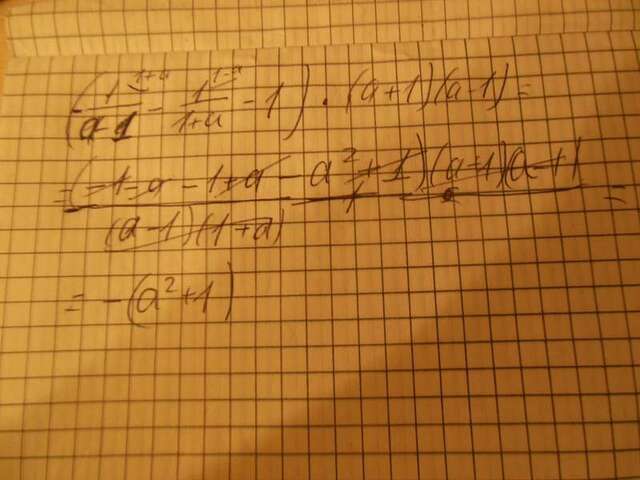 (1/(a-1) ^(1+a) - 1/(1+a) ^(1-a) - 1) · (a+1)(a-1) =
= (-1-a -1+a - a²+1)(a+1)(a-1) / (a-1)(1+a) 1 =
= -(a²+1)